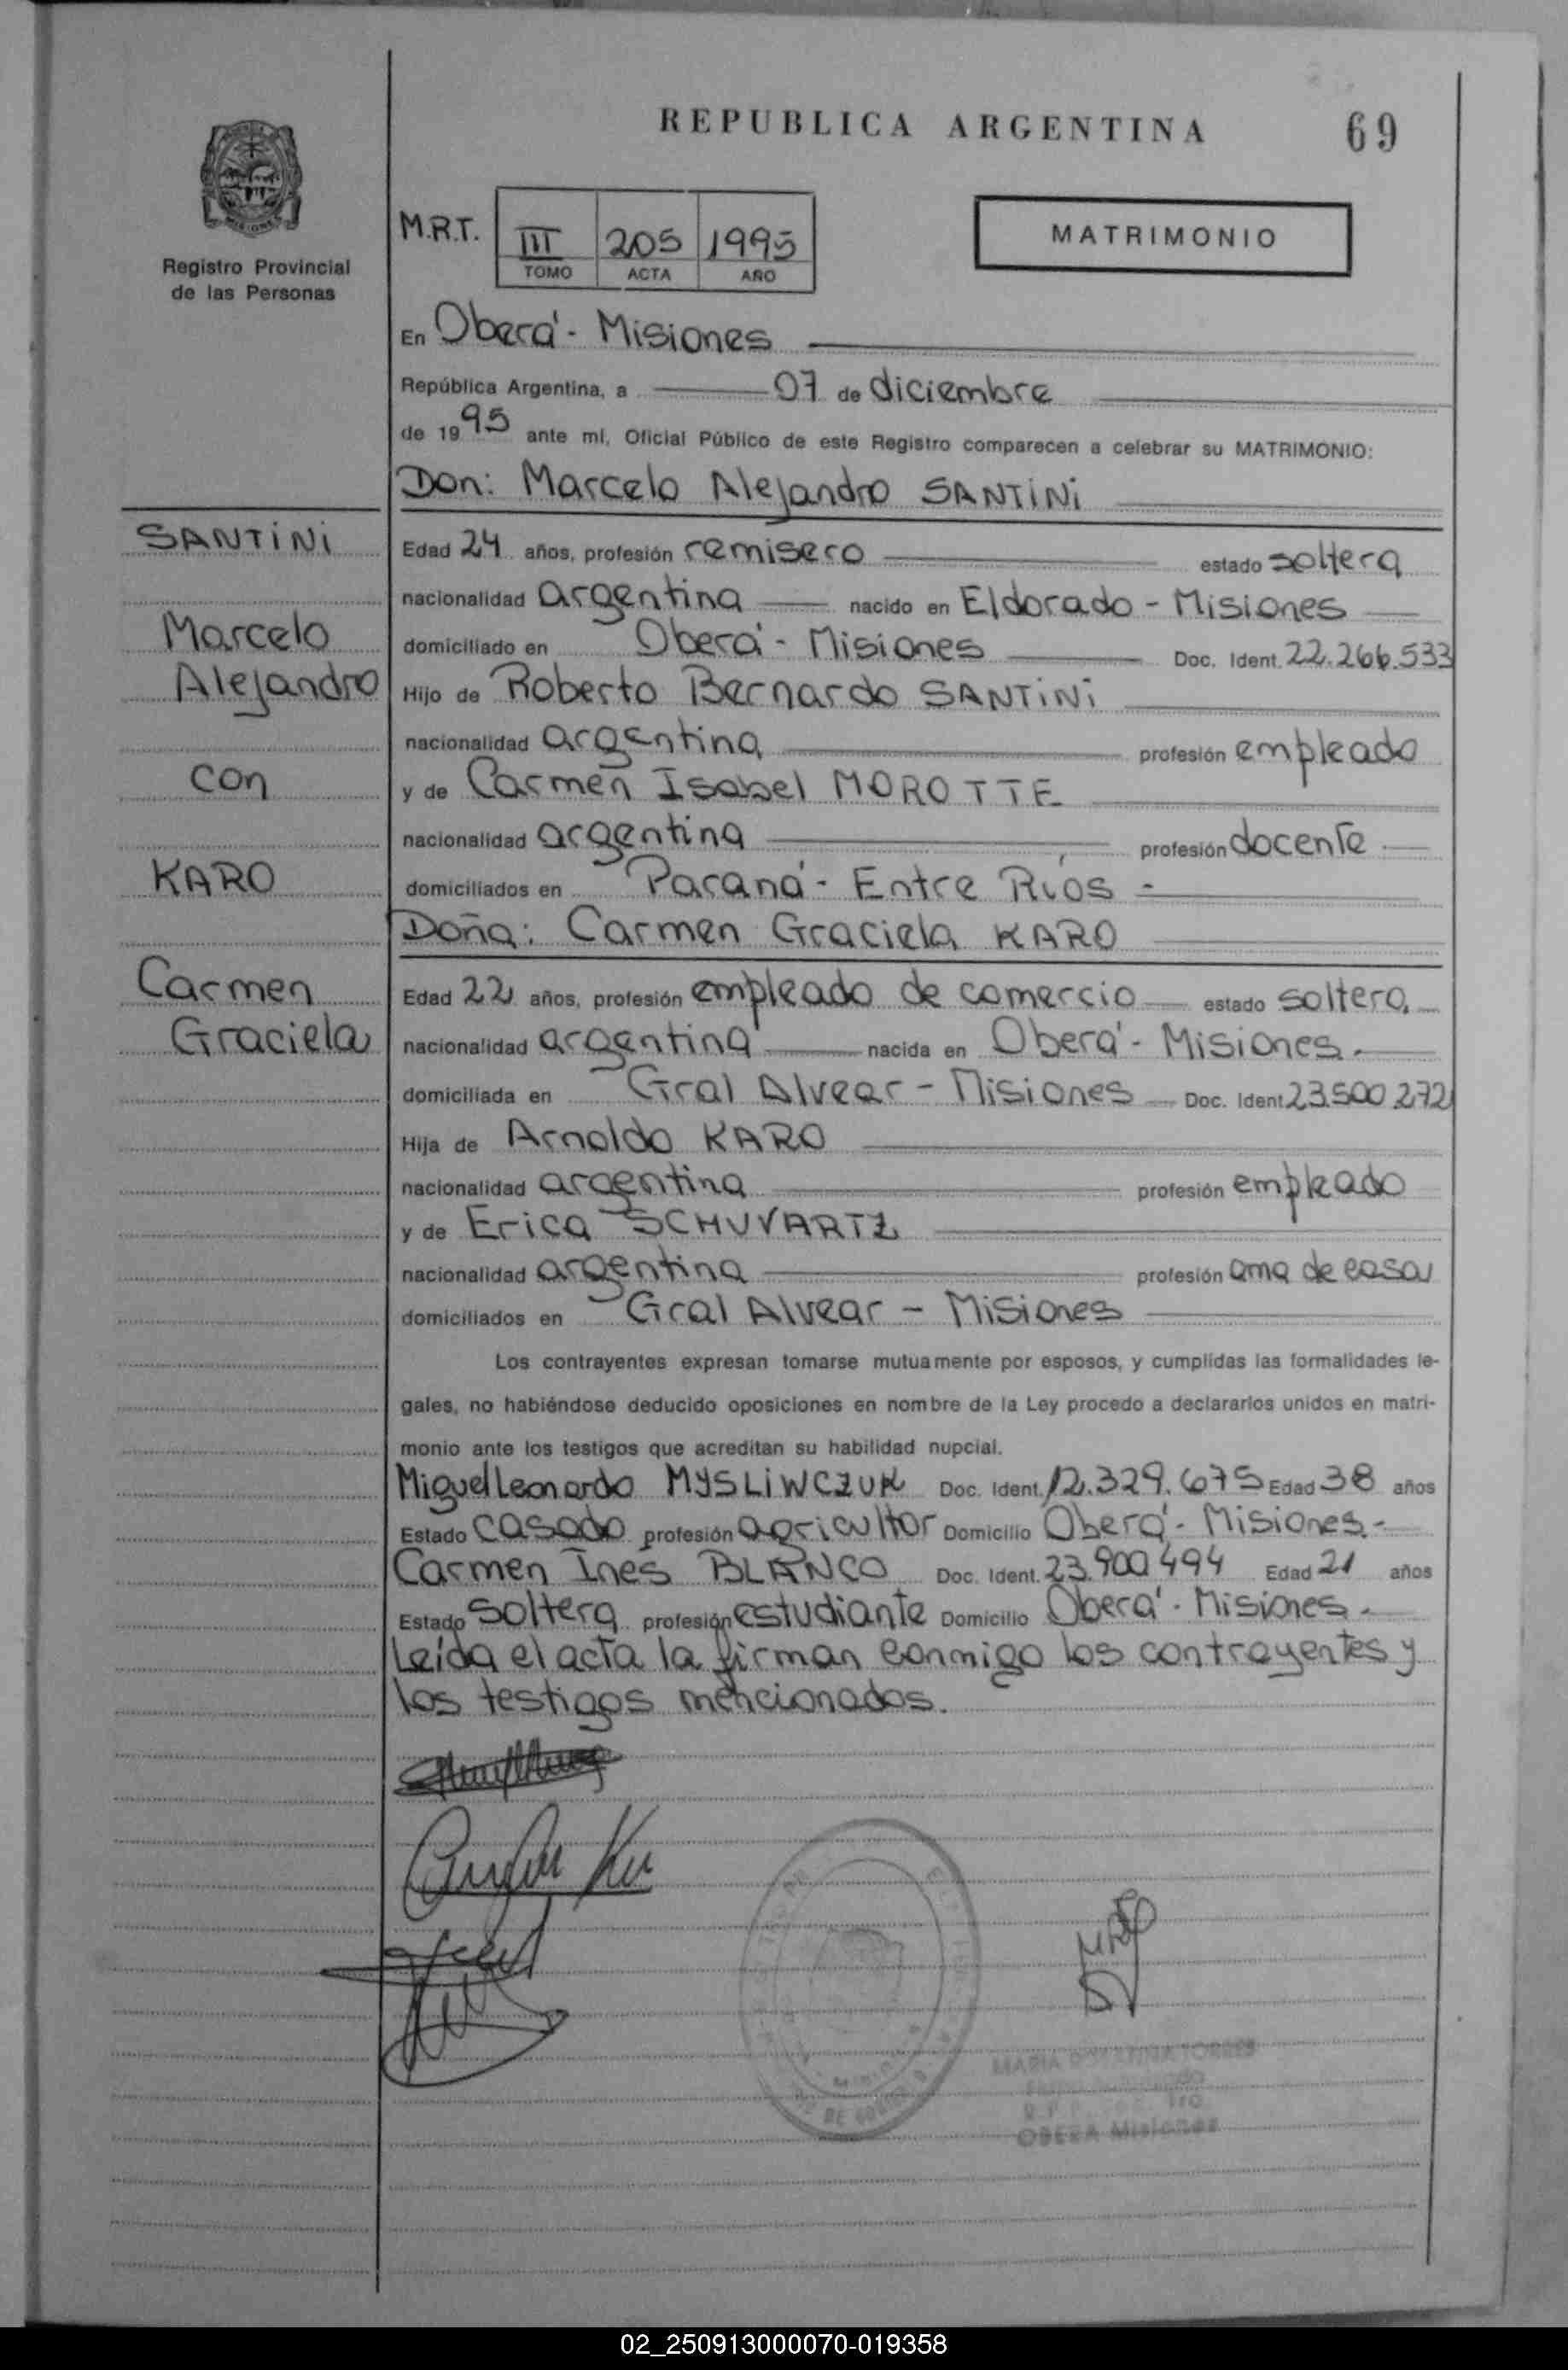 REPUBLICA ARGENTINA
69
Registro Provincial
de las Personas
M.R.T.
III 205 1995
TOMO ACTA AÑO
MATRIMONIO
En Oberá - Misiones
República Argentina, a 07 de diciembre
de 1995 ante mí, Oficial Público de este Registro comparecen a celebrar su MATRIMONIO:
Don: Marcelo Alejandro SANTINI
SANTINI
Marcelo
Alejandro
con
KARO
Carmen
Graciela
Edad 24 años, profesión remisero estado soltera
nacionalidad argentina nacido en Eldorado - Misiones
domiciliado en Oberá - Misiones Doc. Ident. 22.266.533
Hijo de Roberto Bernardo SANTINI
nacionalidad argentina profesión empleado
y de Carmen Isabel MOROTTE
nacionalidad argentina profesión docente
domiciliados en Paraná - Entre Ríos -
Doña: Carmen Graciela KARO
Edad 22 años, profesión empleado de comercio estado soltera
nacionalidad argentina nacida en Oberá - Misiones.
domiciliada en Gral Alvear - Misiones Doc. Ident 23.500.272
Hija de Arnoldo KARO
nacionalidad argentina profesión empleado
y de Erica SCHUVARTZ
nacionalidad argentina profesión ama de casa
domiciliados en Gral Alvear - Misiones
Los contrayentes expresan tomarse mutuamente por esposos, y cumplidas las formalidades le-
gales, no habiéndose deducido oposiciones en nombre de la Ley procedo a declararlos unidos en matri-
monio ante los testigos que acreditan su habilidad nupcial.
Miguel Leonardo MYSLIWCZUK Doc. Ident. 12.329.675 Edad 38 años
Estado casado profesión agricultor Domicilio Oberá - Misiones -
Carmen Ines BLANCO Doc. Ident. 23.900494 Edad 21 años
Estado soltera profesión estudiante Domicilio Oberá - Misiones -
Leída el acta la firman conmigo los contrayentes y
los testigos mencionados.
OBERA Misiones
02_250913000070-019358